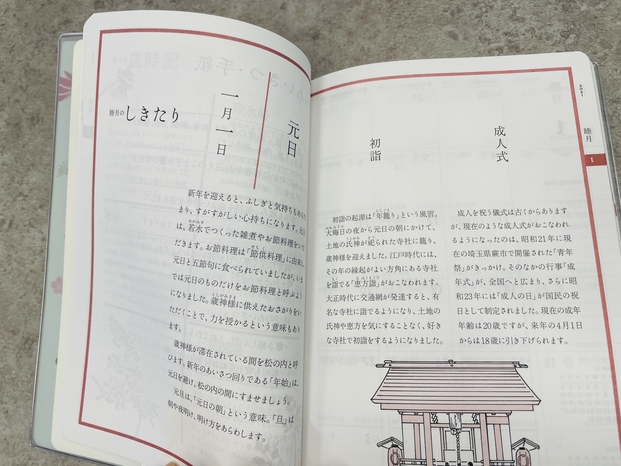 睦月の
しきたり
一月一日
元日
新年を迎えると、ふしぎと気持ちもあらた
まり、すがすがしい心持ちになります。元日に
は、若水でつくった雑煮やお節料理をいた
だきます。お節料理は「節供料理」に由来し、
元日と五節句に食べられていましたが、いま
では元日のものだけをお節料理と呼ぶよう
になりました。歳神様に供えたおさがりをい
ただくことで、力を授かるという意味もあり
ます。
歳神様が滞在されている間を松の内と呼
びます。新年のあいさつ回りである「年始」は、
元日を避け、松の内の間にすませましょう。
元旦は、「元日の朝」という意味。「旦」は
朝や夜明け、明け方をあらわします。
成人式
成人を祝う儀式は古くからあります
が、現在のような成人式がおこなわれ
るようになったのは、昭和21年に現
在の埼玉県蕨市で開催された「青年
祭」がきっかけ。そのなかの行事「成
年式」が、全国へと広まり、さらに昭
和23年には「成人の日」が国民の祝
日として制定されました。現在の成年
年齢は20歳ですが、来年の4月1日
からは18歳に引き下げられます。
初詣
初詣の起源は「年籠り」という風習。
大晦日の夜から元日の朝にかけて、
土地の氏神が祀られた寺社に籠り、
歳神様を迎えました。江戸時代には、
その年の縁起がよい方角にある寺社
を詣でる「恵方詣」がおこなわれます。
大正時代に交通網が発達すると、有
名な寺社に詣でるようになり、土地の
氏神や恵方を気にすることなく、好き
な寺社で初詣をするようになりました。
睦月
1